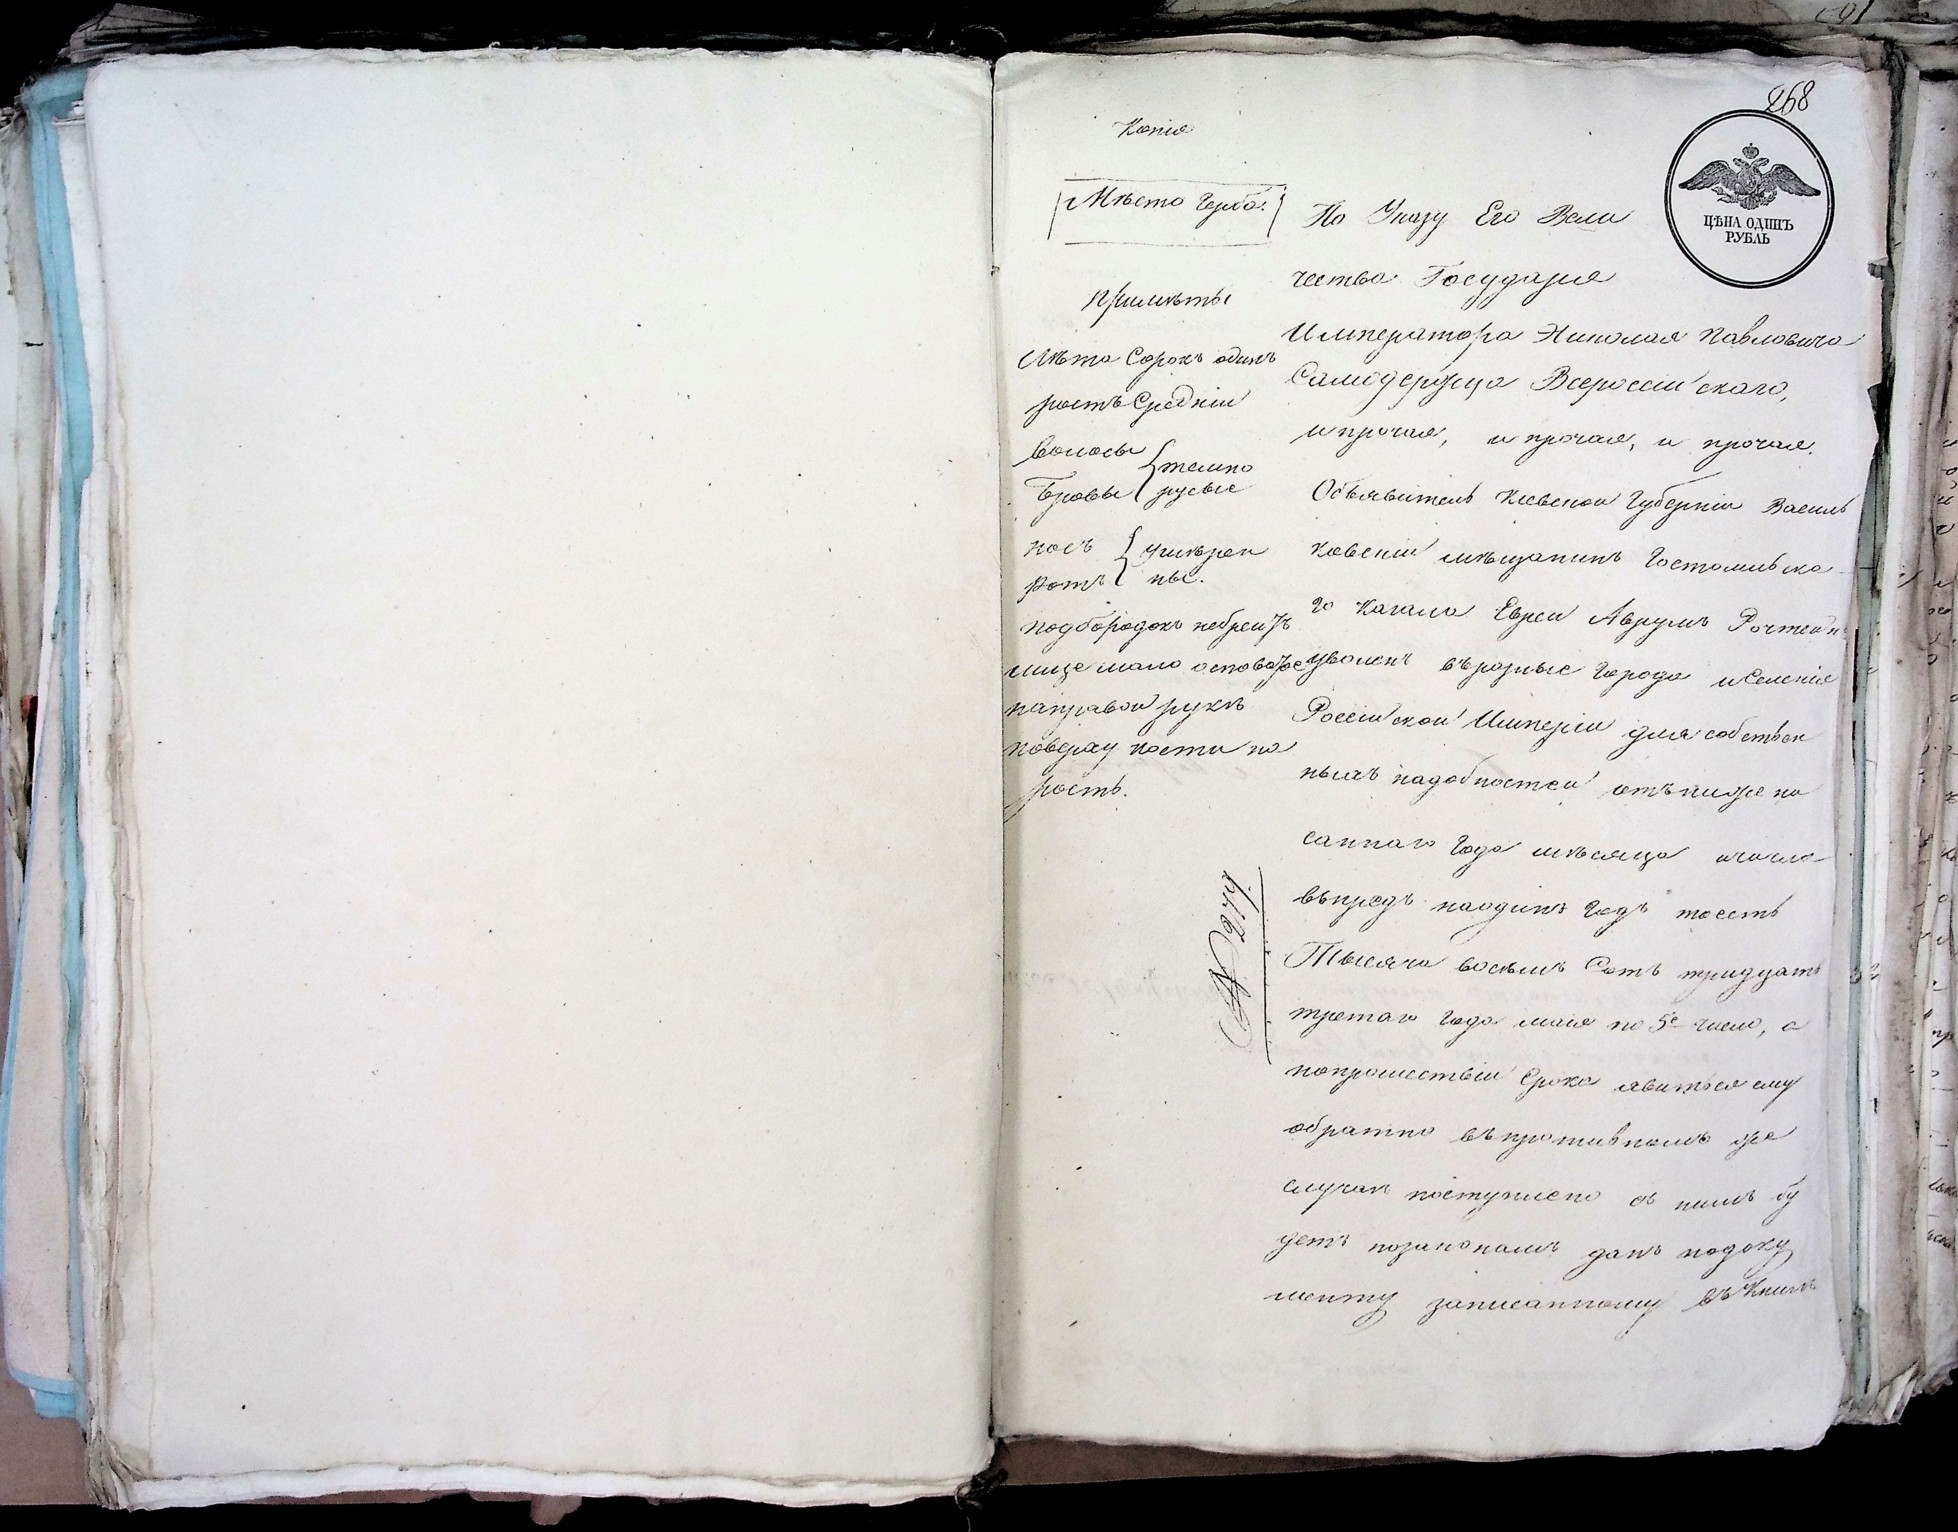 268
Копія
Мѣсто Герба.
ЦѢНА ОДИНЪ
РУБЛЬ
Примѣты
Лѣта Сорокъ одинъ
ростъ Средній
Волосы
Бровы
темно
русые
носъ
ротъ
умѣрен
ные.
подбородокъ небреитъ
лице мало осповатое
направой рукѣ
поверху кости на
рость.
№ 274.
По Указу Его Вели
чества Государя
Императора Николая Павловича
Самодержца Всероссійскаго,
и прочая, и прочая, и прочая.
Объявитель Кіевской Губерніи Василь
ковскій мѣщанинъ Гостомльска
го Кагала Еврей Аврумъ
уволенъ въ разные Города и Селенія
Россійской Имперіи для собствен
ныхъ надобностей отъ ниже пи
саннаго Года мѣсяца и числа
въпредъ на одинъ Годъ тоесть
Тысяча восемь Сотъ тридцать
третаго Года маія по 5е число, а
попрошествіи Срока явиться ему
обратно въ противномъ же
случаѣ поступлено съ нимъ бу
детъ по законамъ данъ по доку
менту записанному въ Книгѣ